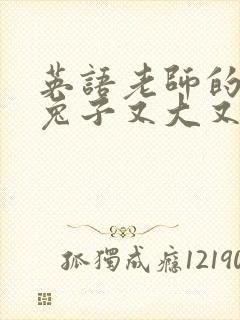 英語老師的
兔子又大又
孤獨成癮12190